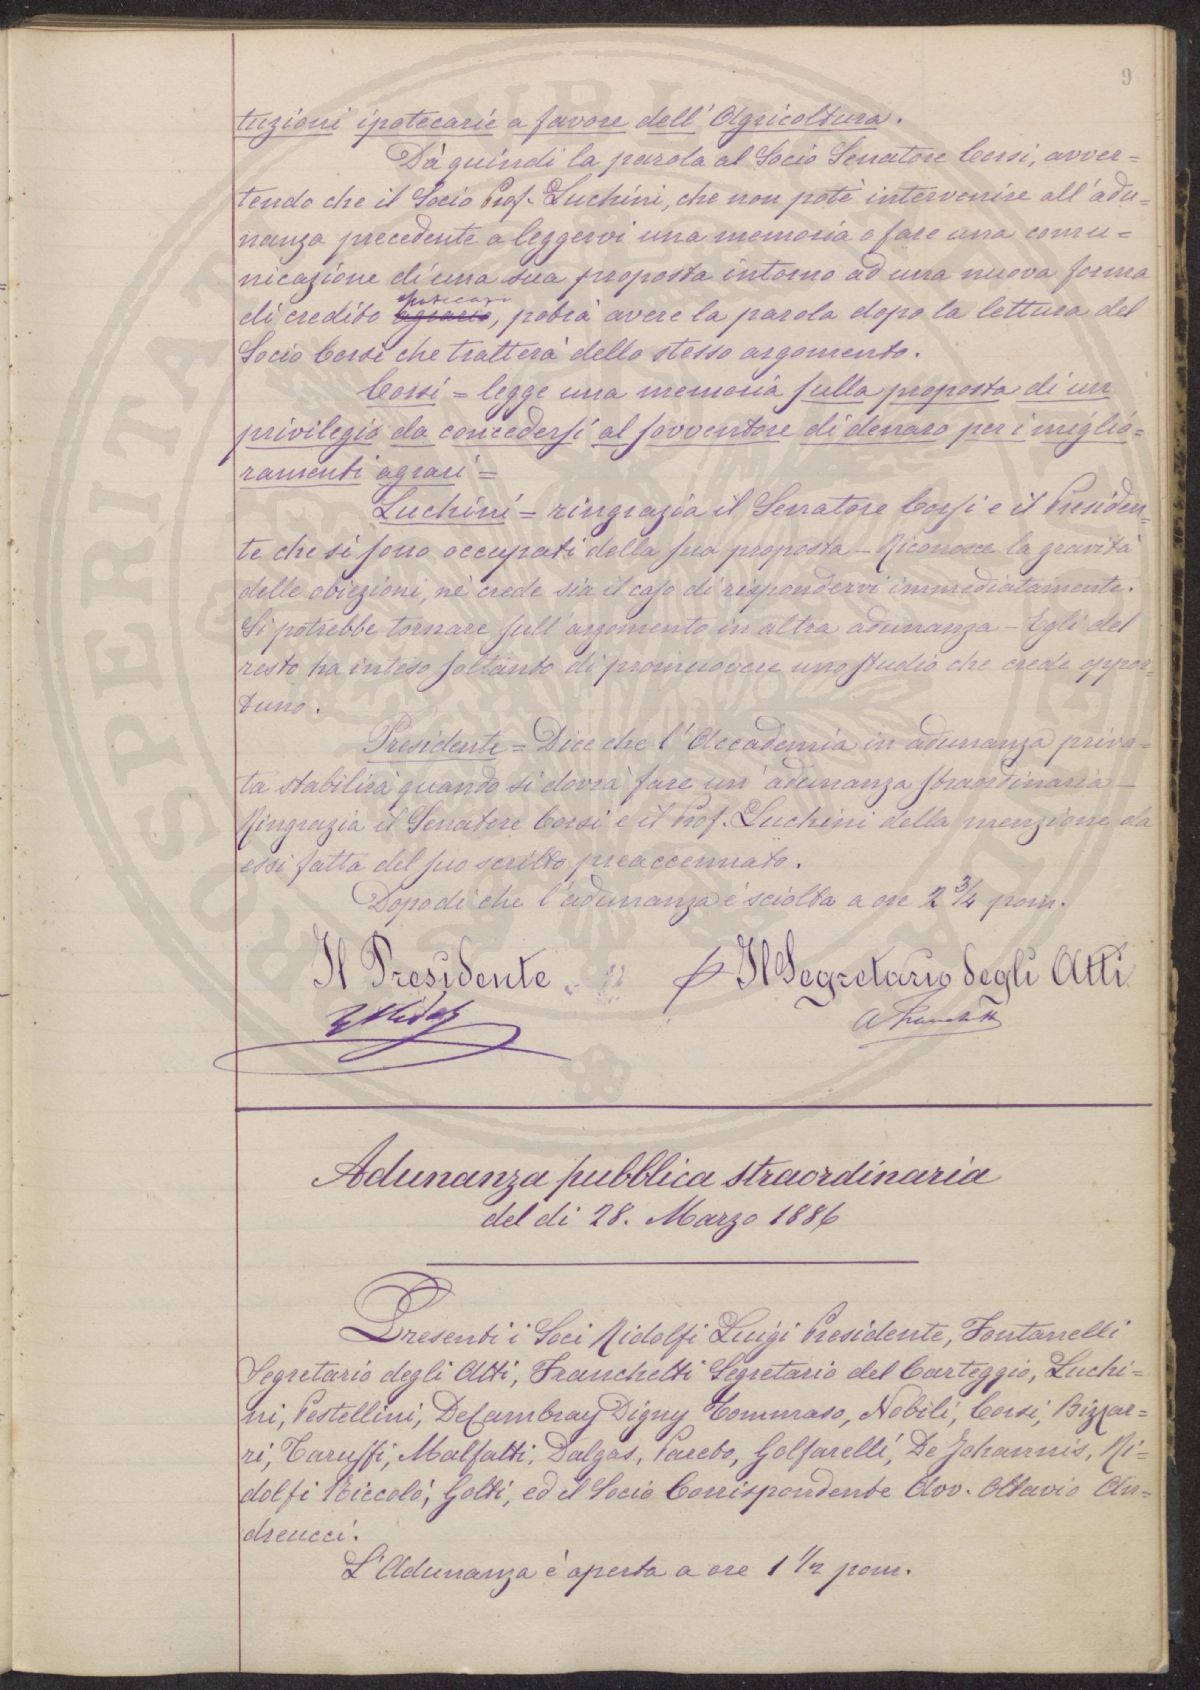 9
tuzioni ipotecarie a favore dell'Agricoltura.
Dà quindi la parola al Socio Senatore Corsi, avver=
tendo che il Socio Prof. Luchini, che non potè intervenire all'adu=
nanza precedente a leggervi una memoria o fare una comu=
nicazione di una sua proposta intorno ad una nuova forma
ipotecario
di credito agrario, potrà avere la parola dopo la lettura del
Socio Corsi che tratterà dello stesso argomento.
Corsi = legge una memoria sulla proposta di un
privilegio da concedersi al sovventore di denaro per i miglio=
ramenti agrari =
Luchini = ringrazia il Senatore Corsi e il Presiden=
te che si sono occupati della sua proposta – Riconosce la gravità
delle obiezioni, nè crede sia il caso di rispondervi immediatamente.
Si potrebbe tornare sull'argomento in altra adunanza – Egli del
resto ha inteso soltanto di promuovere uno studio che crede oppor=
tuno.
Presidente = Dice che l'Accademia in adunanza priva=
ta stabilirà quando si dovrà fare un'adunanza straordinaria –
Ringrazia il Senatore Corsi e il Prof. Luchini della menzione da
essi fatta del suo scritto preaccennato.
Dopo di che l'adunanza è sciolta a ore 2 3/4 pom.
Il Presidente
Il Segretario degli Atti
L Ridolfi
A Franchetti
Adunanza pubblica straordinaria
del dì 28. Marzo 1886
Presenti i Soci Ridolfi Luigi Presidente, Fontanelli
Segretario degli Atti, Franchetti Segretario del Carteggio, Luchi=
ni, Pestellini, DeCambray Digny Tommaso, Nobili, Corsi, Bizzar=
ri, Taruffi, Malfatti, Dalgas, Pareto, Golfarelli, De Johannis, Ri=
dolfi Niccolò, Gotti, ed il Socio Corrispondente Avv. Ottavio An=
dreucci.
L'Adunanza è aperta a ore 1 1/2 pom.
PROSPERITATI PUBLICAE